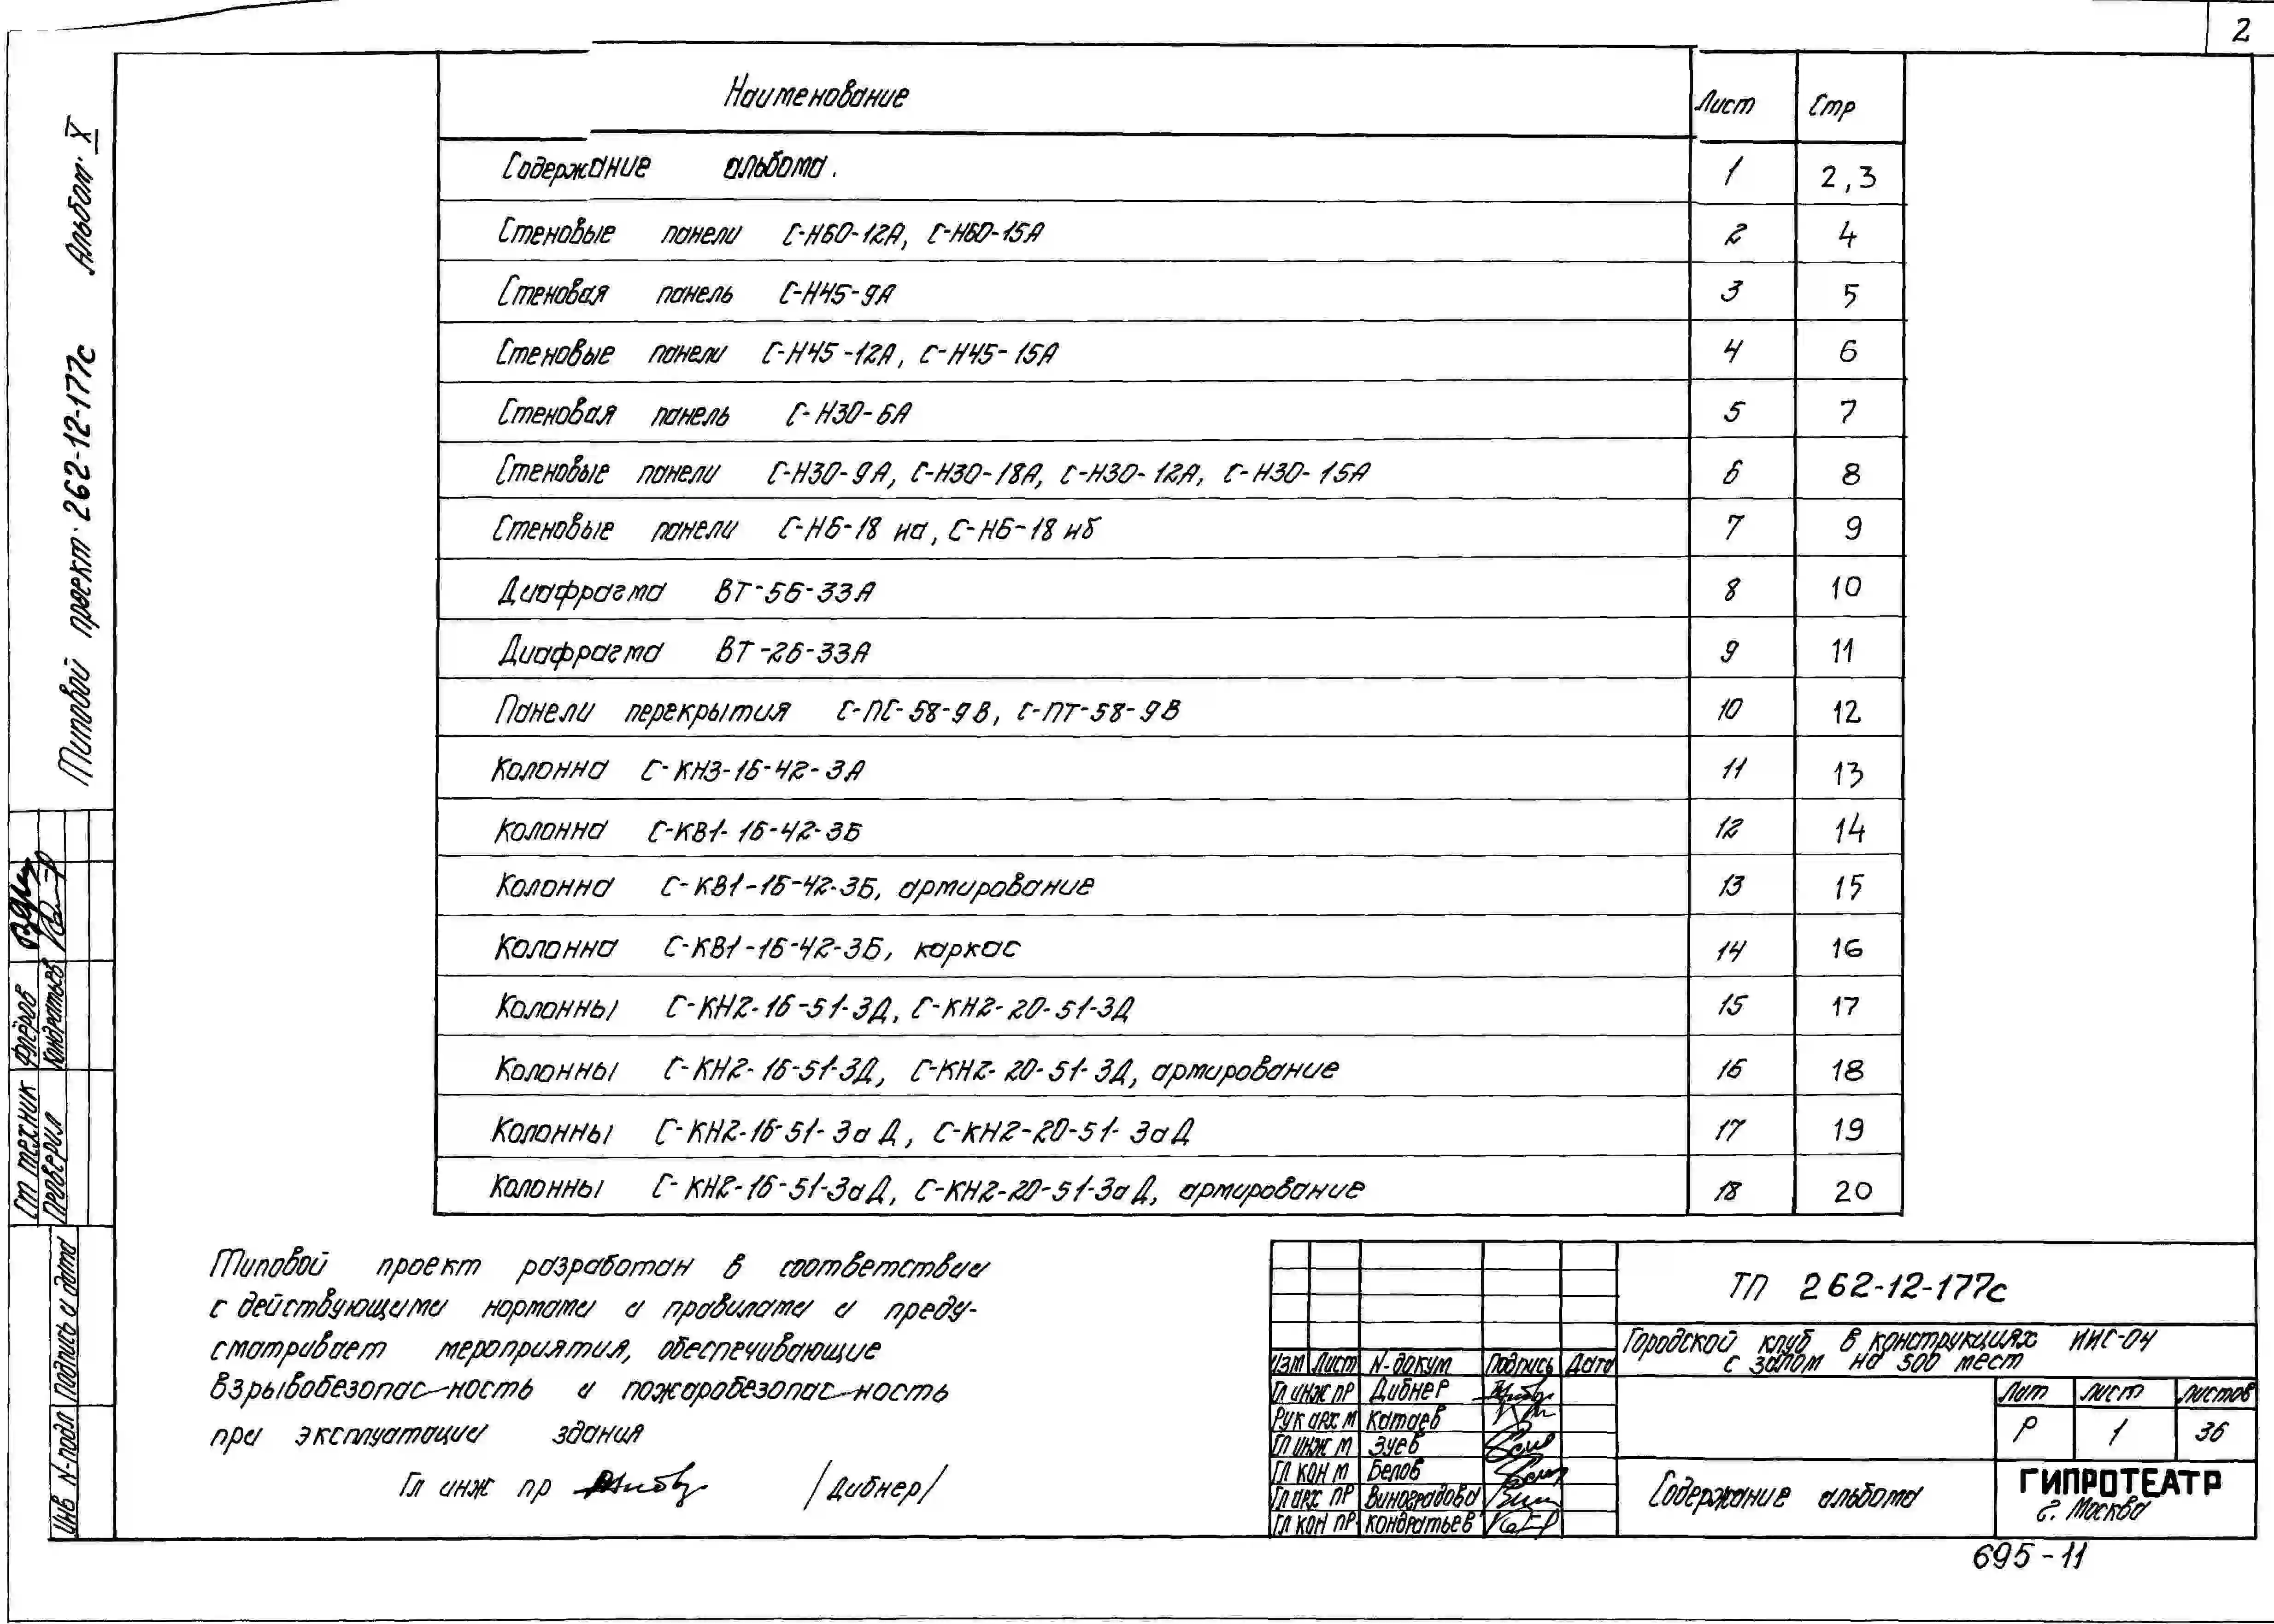 2
Типовой проект 262-12-177с Альбом X
Наименование Лист Стр
Содержание альбома. 1 2,3
Стеновые панели С-Н60-12А, С-Н60-15А 2 4
Стеновая панель С-Н45-9А 3 5
Стеновые панели С-Н45-12А, С-Н45-15А 4 6
Стеновая панель С-Н30-6А 5 7
Стеновые панели С-Н30-9А, С-Н30-18А, С-Н30-12А, С-Н30-15А 6 8
Стеновые панели С-Н6-18 на, С-Н6-18 нб 7 9
Диафрагма ВТ-56-33А 8 10
Диафрагма ВТ-26-33А 9 11
Панели перекрытия С-ПС-58-9В, С-ПТ-58-9В 10 12
Колонна С-КН3-16-42-3А 11 13
Колонна С-КВ1-16-42-3Б 12 14
Колонна С-КВ1-16-42-3Б, армирование 13 15
Колонна С-КВ1-16-42-3Б, каркас 14 16
Колонны С-КН2-16-51-3Д, С-КН2-20-51-3Д 15 17
Колонны С-КН2-16-51-3Д, С-КН2-20-51-3Д, армирование 16 18
Колонны С-КН2-16-51-3аД, С-КН2-20-51-3аД 17 19
Колонны С-КН2-16-51-3аД, С-КН2-20-51-3аД, армирование 18 20
Ст техник Флёров
Проверил Кондратьев
Инв N-подл Подпись и дата
Типовой проект разработан в соответствии
с действующими нормами и правилами и преду-
сматривает мероприятия, обеспечивающие
взрывобезопасность и пожаробезопасность
при эксплуатации здания
Гл инж пр /Дибнер/
ТП 262-12-177с
Городской клуб в конструкциях ИИС-04
с залом на 500 мест
Изм Лист N-докум Подпись Дата
Гл инж пр Дибнер
Рук арх м Катаев
Гл инж м Зуев
Гл кон м Белов
Гл арх пр Виноградова
Гл кон пр Кондратьев
Лит Лист Листов
Р 1 36
Содержание альбома
ГИПРОТЕАТР
г. Москва
695-11